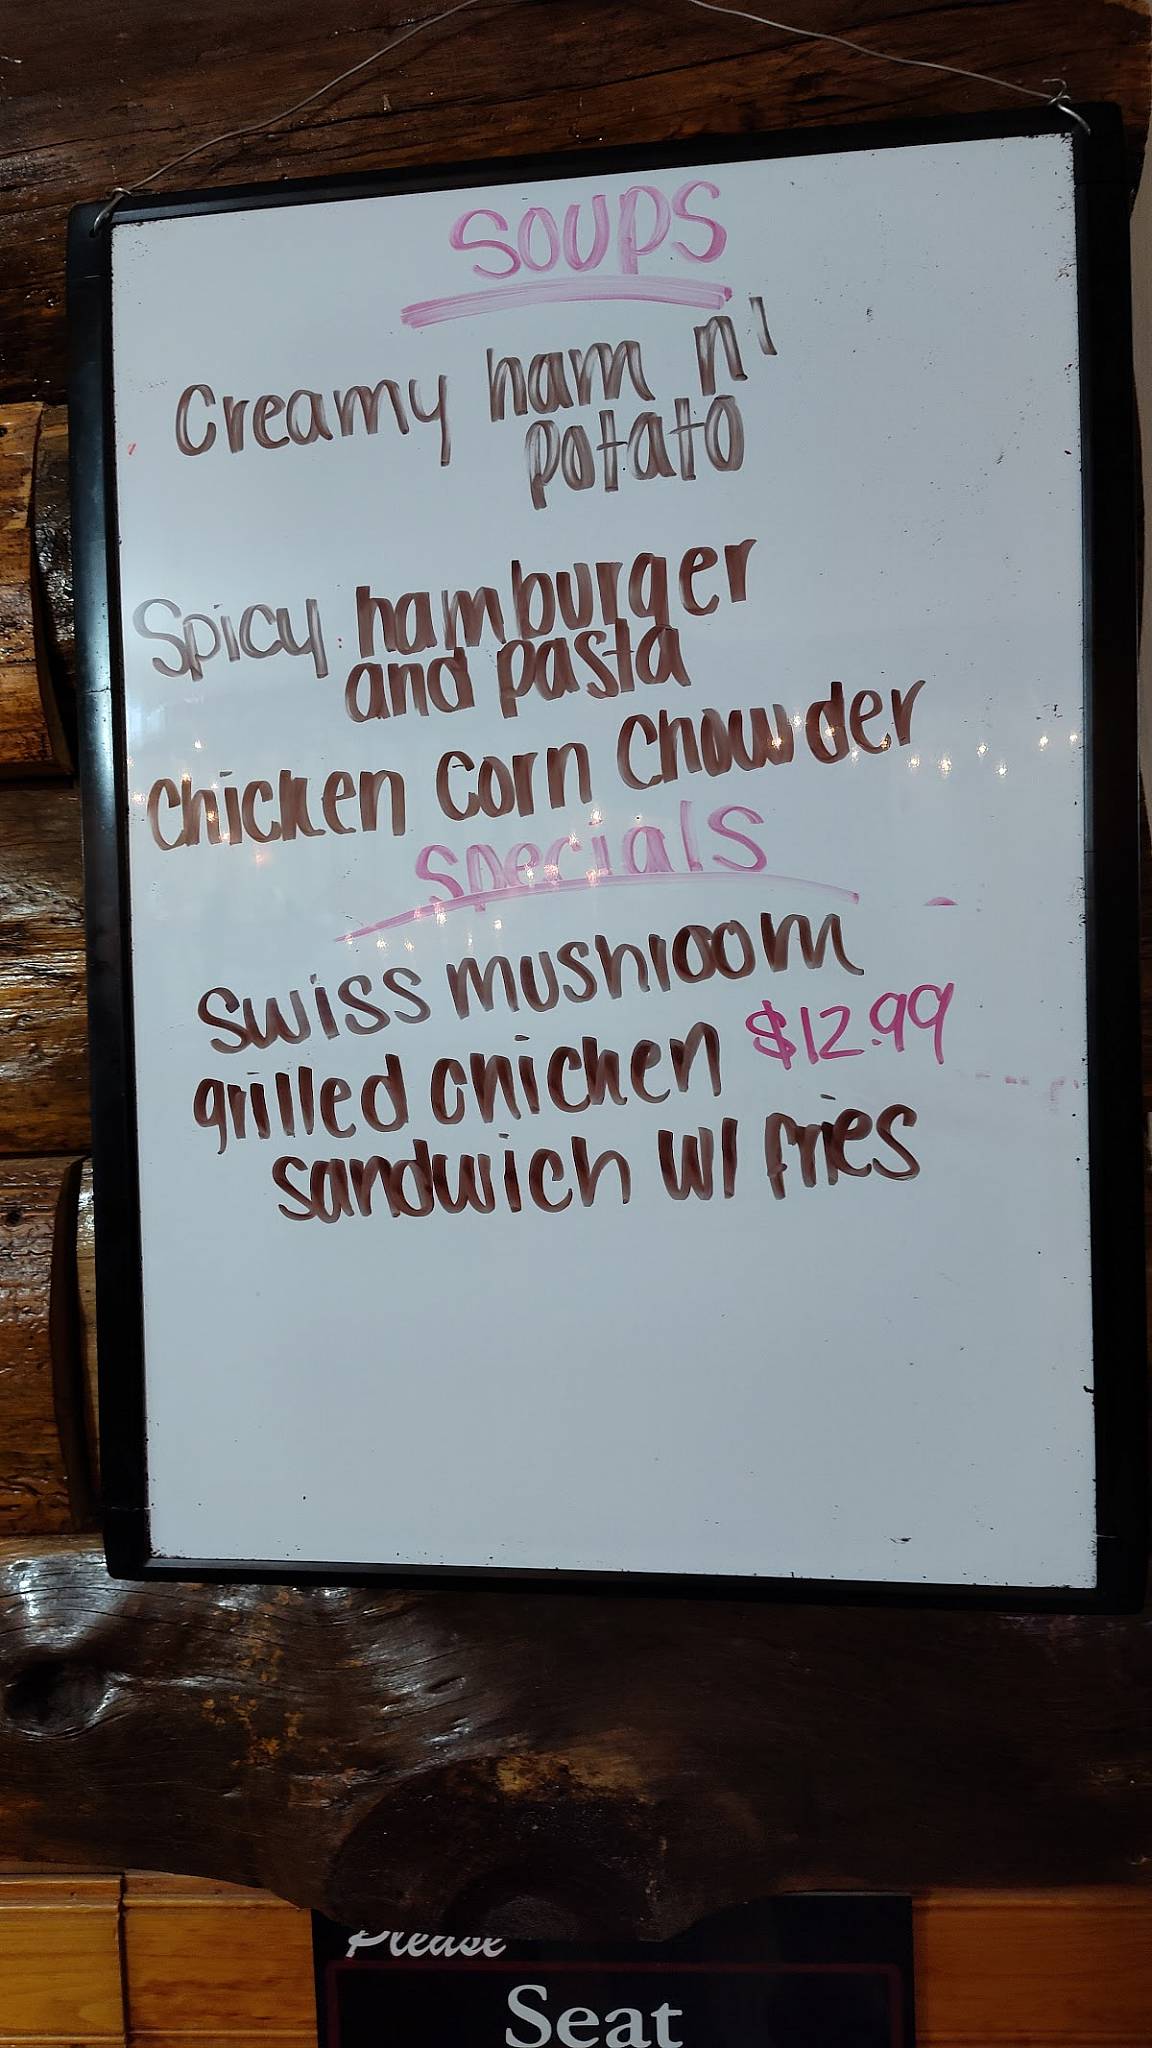 SOUPS
Creamy ham n'
potato
Spicy hamburger
and pasta
Chicken Corn Chowder
Specials
Swiss mushroom
grilled chicken $12.99
sandwich w/ fries
Please
Seat